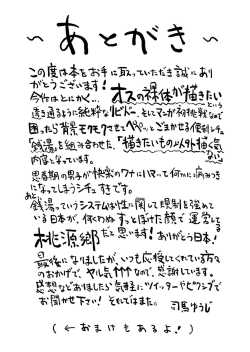 ～あとがき～
この度は本をお手に取っていただき誠にあり
がとうございます！
今作はとにかく… オスの裸体が描きたい という
透き通るように純粋なリビドー、そしてマンガ初挑戦なので
困ったら背景モクモクさせてペペッとごまかせる便利シチュ
「銭湯」を組み合わせた、「描きたいものしか描く気ない」
内容となっています。
思春期の男子が快楽のワナにハマって何かに病みつき
になってしまうシチュすきです。
あと
銭湯っていうシステムは性に関して規制を強めて
いる日本が、何くわぬすっとぼけた顔で運営してる
桃源郷だと思います！ありがとう日本！
最後になりましたが、いつも応援してくれている方々
のおかげで、ヤル気↑↑↑なので、感謝しています。
感想などありましたら気軽にツイッターやピクシブで
お聞かせ下さい！それではまた。 司馬ゆうじ
（←おまけもあるよ！）